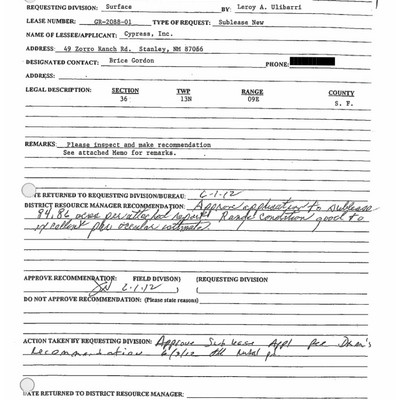 REQUESTING DIVISION: Surface BY: Leroy A. Ulibarri
LEASE NUMBER: GR-2088-01 TYPE OF REQUEST: Sublease New
NAME OF LESSEE/APPLICANT: Cypress, Inc.
ADDRESS: 49 Zorro Ranch Rd. Stanley, NM 87086
DESIGNATED CONTACT: Brice Gordon PHONE:
ADDRESS:
LEGAL DESCRIPTION: SECTION TWP RANGE COUNTY
36 13N 09E S. F.
REMARKS: Please inspect and make recommendation
See attached Memo for remarks.
TE RETURNED TO REQUESTING DIVISION/BUREAU: 6-1-12
DISTRICT RESOURCE MANAGER RECOMMENDATION: Approve application to sublease
84.86 acres per attached report. Range condition good to
excellent per occular estimate.
APPROVE RECOMMENDATION: FIELD DIVISION) (REQUESTING DIVISION
6-1-12 ) ( )
DO NOT APPROVE RECOMMENDATION: (Please state reasons)
ACTION TAKEN BY REQUESTING DIVISION: Approve Sublease Appl per Drm's
Recommendation
ATE RETURNED TO DISTRICT RESOURCE MANAGER: